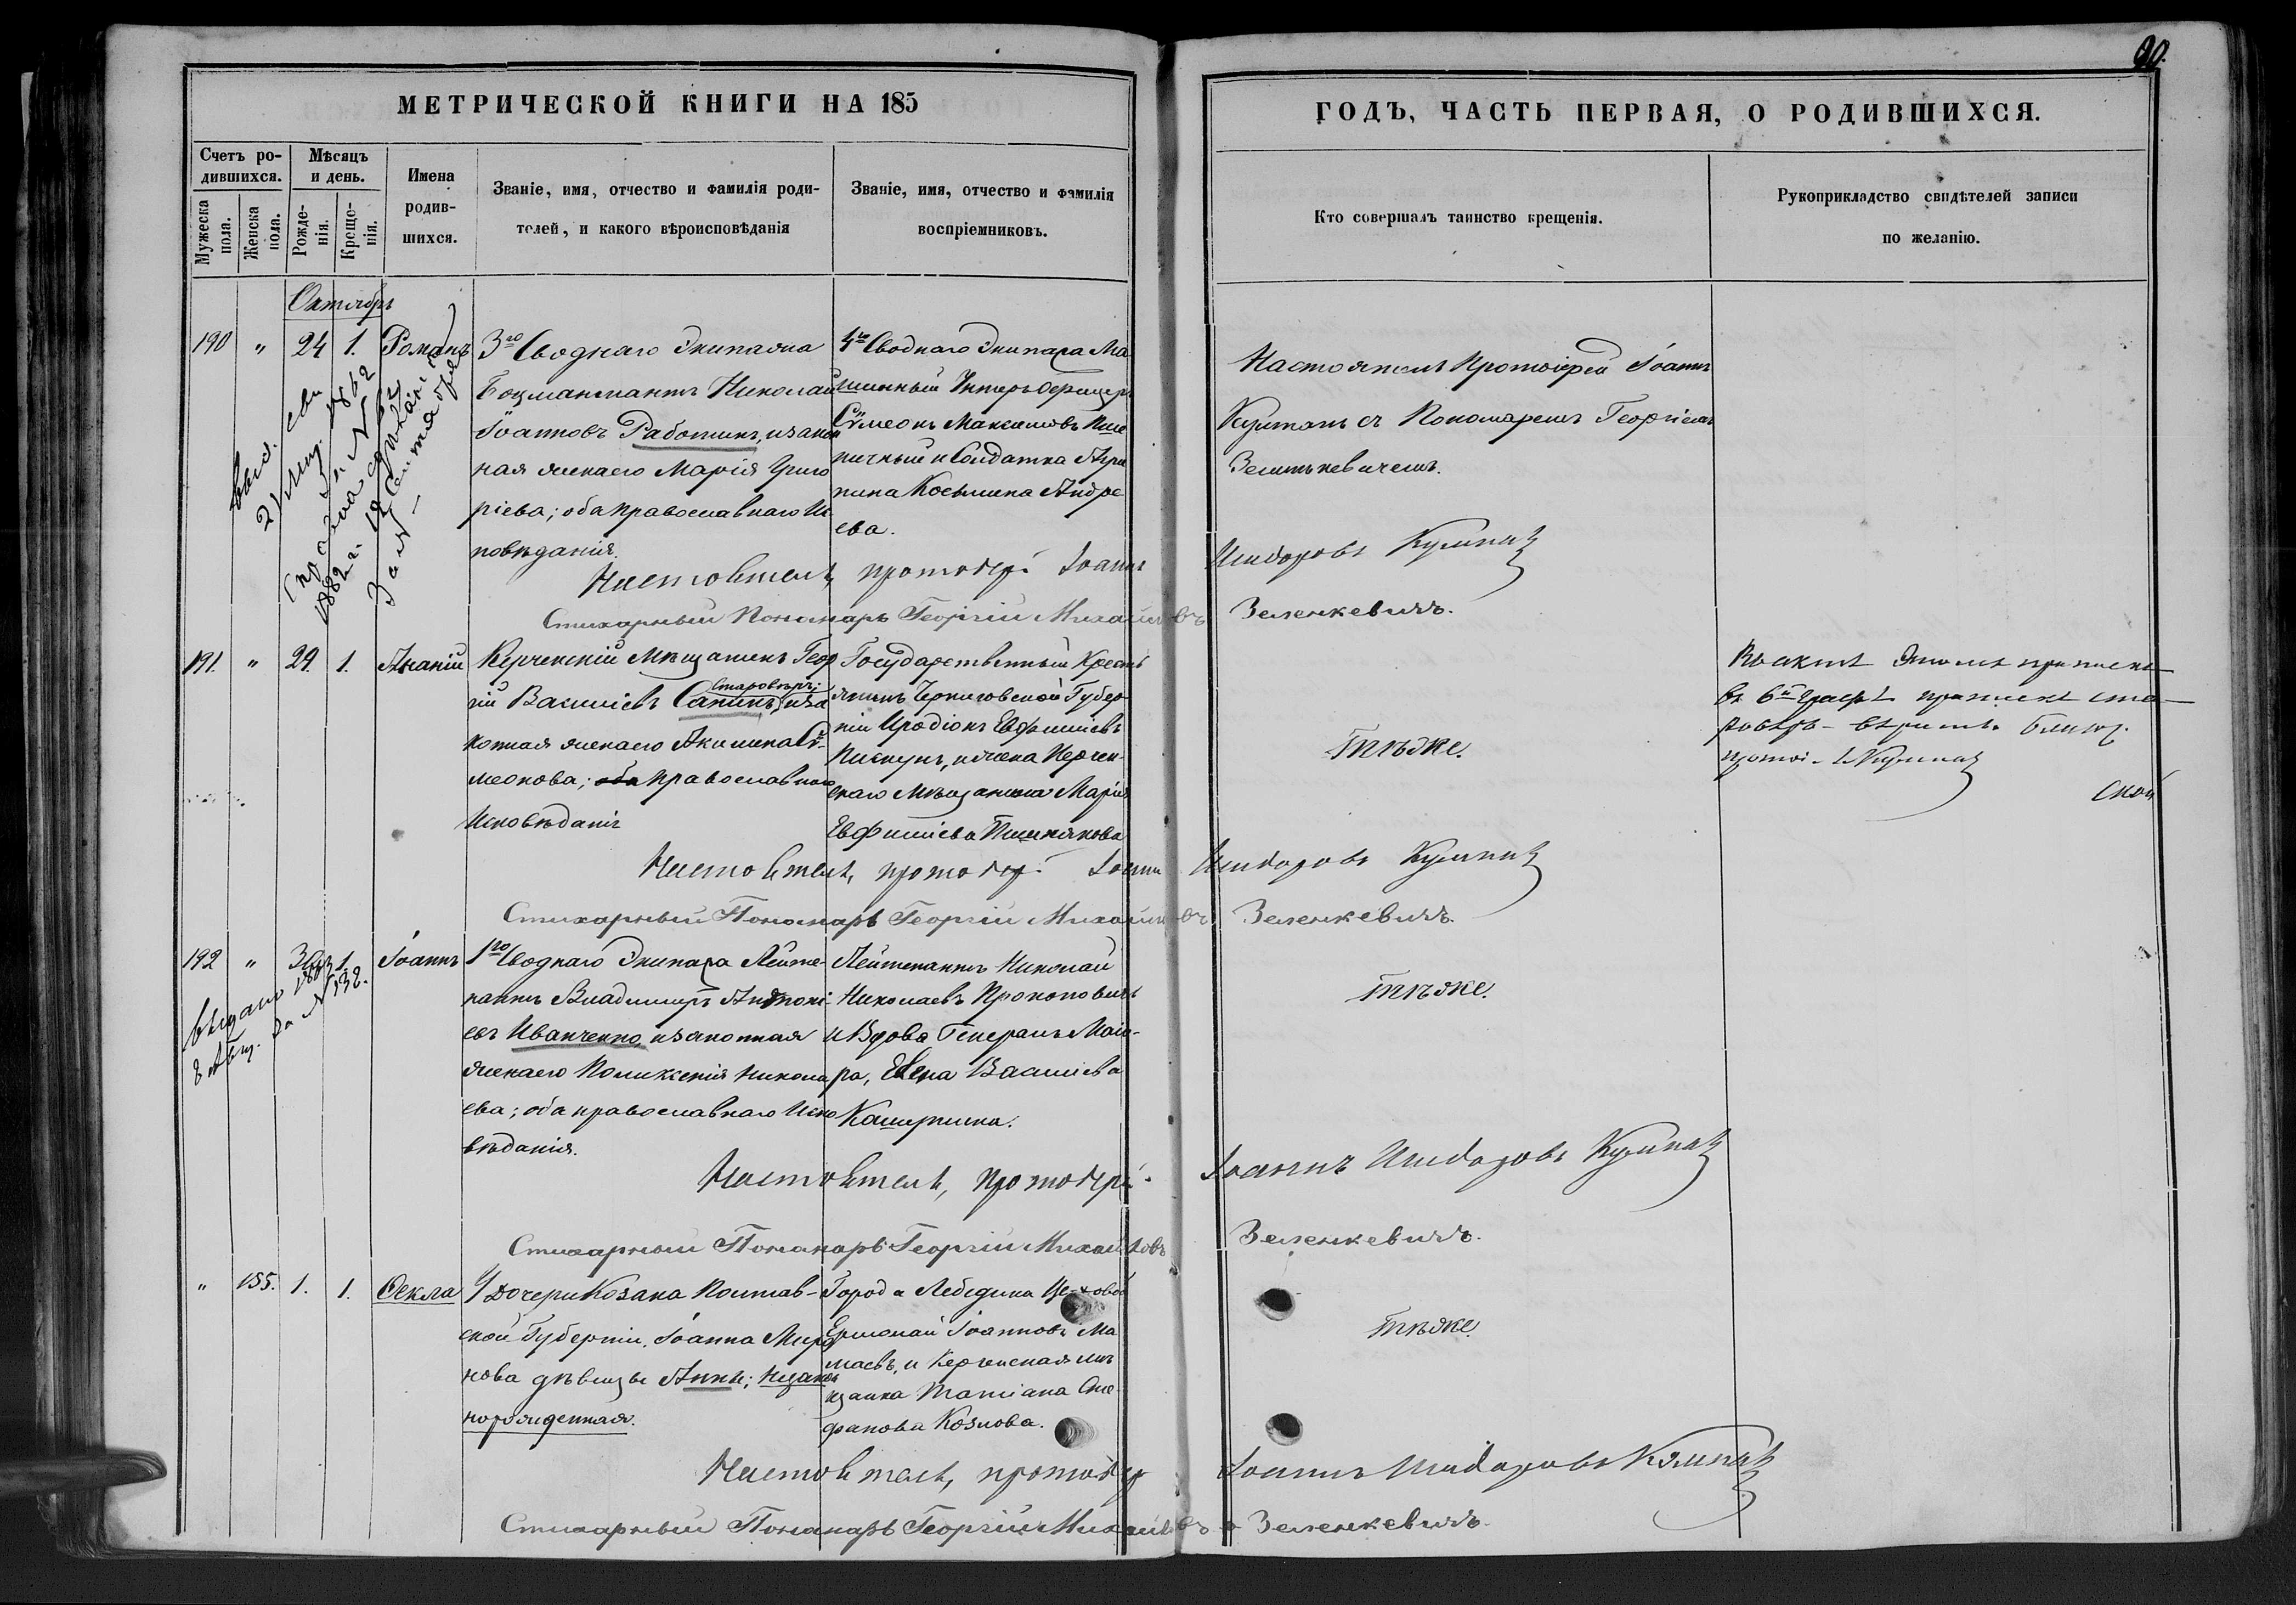 90.
МЕТРИЧЕСКОЙ КНИГИ НА 185
ГОДЪ, ЧАСТЬ ПЕРВАЯ, О РОДИВШИХСЯ.
Счетъ ро-
дившихся.
Мужеска
пола.
Женска
пола.
Мѣсяцъ
и день.
Рожде-
нія.
Креще-
нія.
Имена
родив-
шихся.
Званіе, имя, отчество и фамилія роди-
телей, и какого вѣроисповѣданія
Званіе, имя, отчество и фамилія
воспріемниковъ.
Кто совершалъ таинство крещенія.
Рукоприкладство свидѣтелей записи
по желанію.
Октябрь
190 " 24 1. Романъ
3го Своднаго Экипажа
Боцманматъ Николай
Іоанновъ Работинъ, и закон
ная жена его Марія Григо
ріева; оба православнаго Ис
повѣданія.
4го Своднаго Экипажа Ма
шинный Унтеръ Офицеръ
Сѵмеонъ Максимовъ Пше
ничный и Солдатка Агри
пина Косьмина Андре
ева.
Настоятель Протоіерей Іоаннъ
съ Пономаремъ Георгіемъ
Зеленкевичемъ.
Настоятель, протоіер. Іоаннъ Исидоровъ
Стихарный Пономарь Георгій Михайловъ Зеленкевичъ.
191. " 29. 1. Ананій
Керченскій Мѣщанинъ Геор
гій Василіевъ Санинъ, и за
Старовѣръ;
конная жена его Акилина Сѵ-
меонова; православнаго
Исповѣданія
Государственный Крестъ
янинъ Черниговской Губер-
ніи Иродіонъ Евфиміевъ
Пискунъ, и жена Керчен-
скаго Мѣщанина Марія
Евфиміева
Тѣ же.
въ 6й графѣ ста-
ровѣръ - вѣрить
протоі.
Настоятель, протоіер. Іоаннъ Исидоровъ
Стихарный Пономарь Георгій Михайловъ Зеленкевичъ.
192 " 30. 1. Іоаннъ
выдано
8 Авг. за № 132.
1го Своднаго Экипажа Лейте-
нантъ Владимиръ Антоні-
евъ Иванченко, и законная
жена его Поликсенія Никола
ева; оба православнаго Испо
вѣданія.
Лейтенантъ Николай
Николаевъ Прокоповичъ
и Вдова Генералъ Маіо-
ра, Елена Василіева
Тѣ же.
Настоятель, протоіер. Іоаннъ Исидоровъ
Стихарный Пономарь Георгій Михайловъ Зеленкевичъ.
" 155. 1. 1. Ѳекла
У дочери Козака Полтав-
ской Губерніи, Іоанна Миро
нова дѣвицы Анны; незакон
норожденная.
Города Лебедина Цеховой
Ермолай Іоанновъ Ма
маевъ, и Керченская мѣ
щанка Татіана Сте-
фанова Козлова.
Тѣ же.
Настоятель, протоіер. Іоаннъ Исидоровъ
Стихарный Пономарь Георгій Михайловъ Зеленкевичъ.